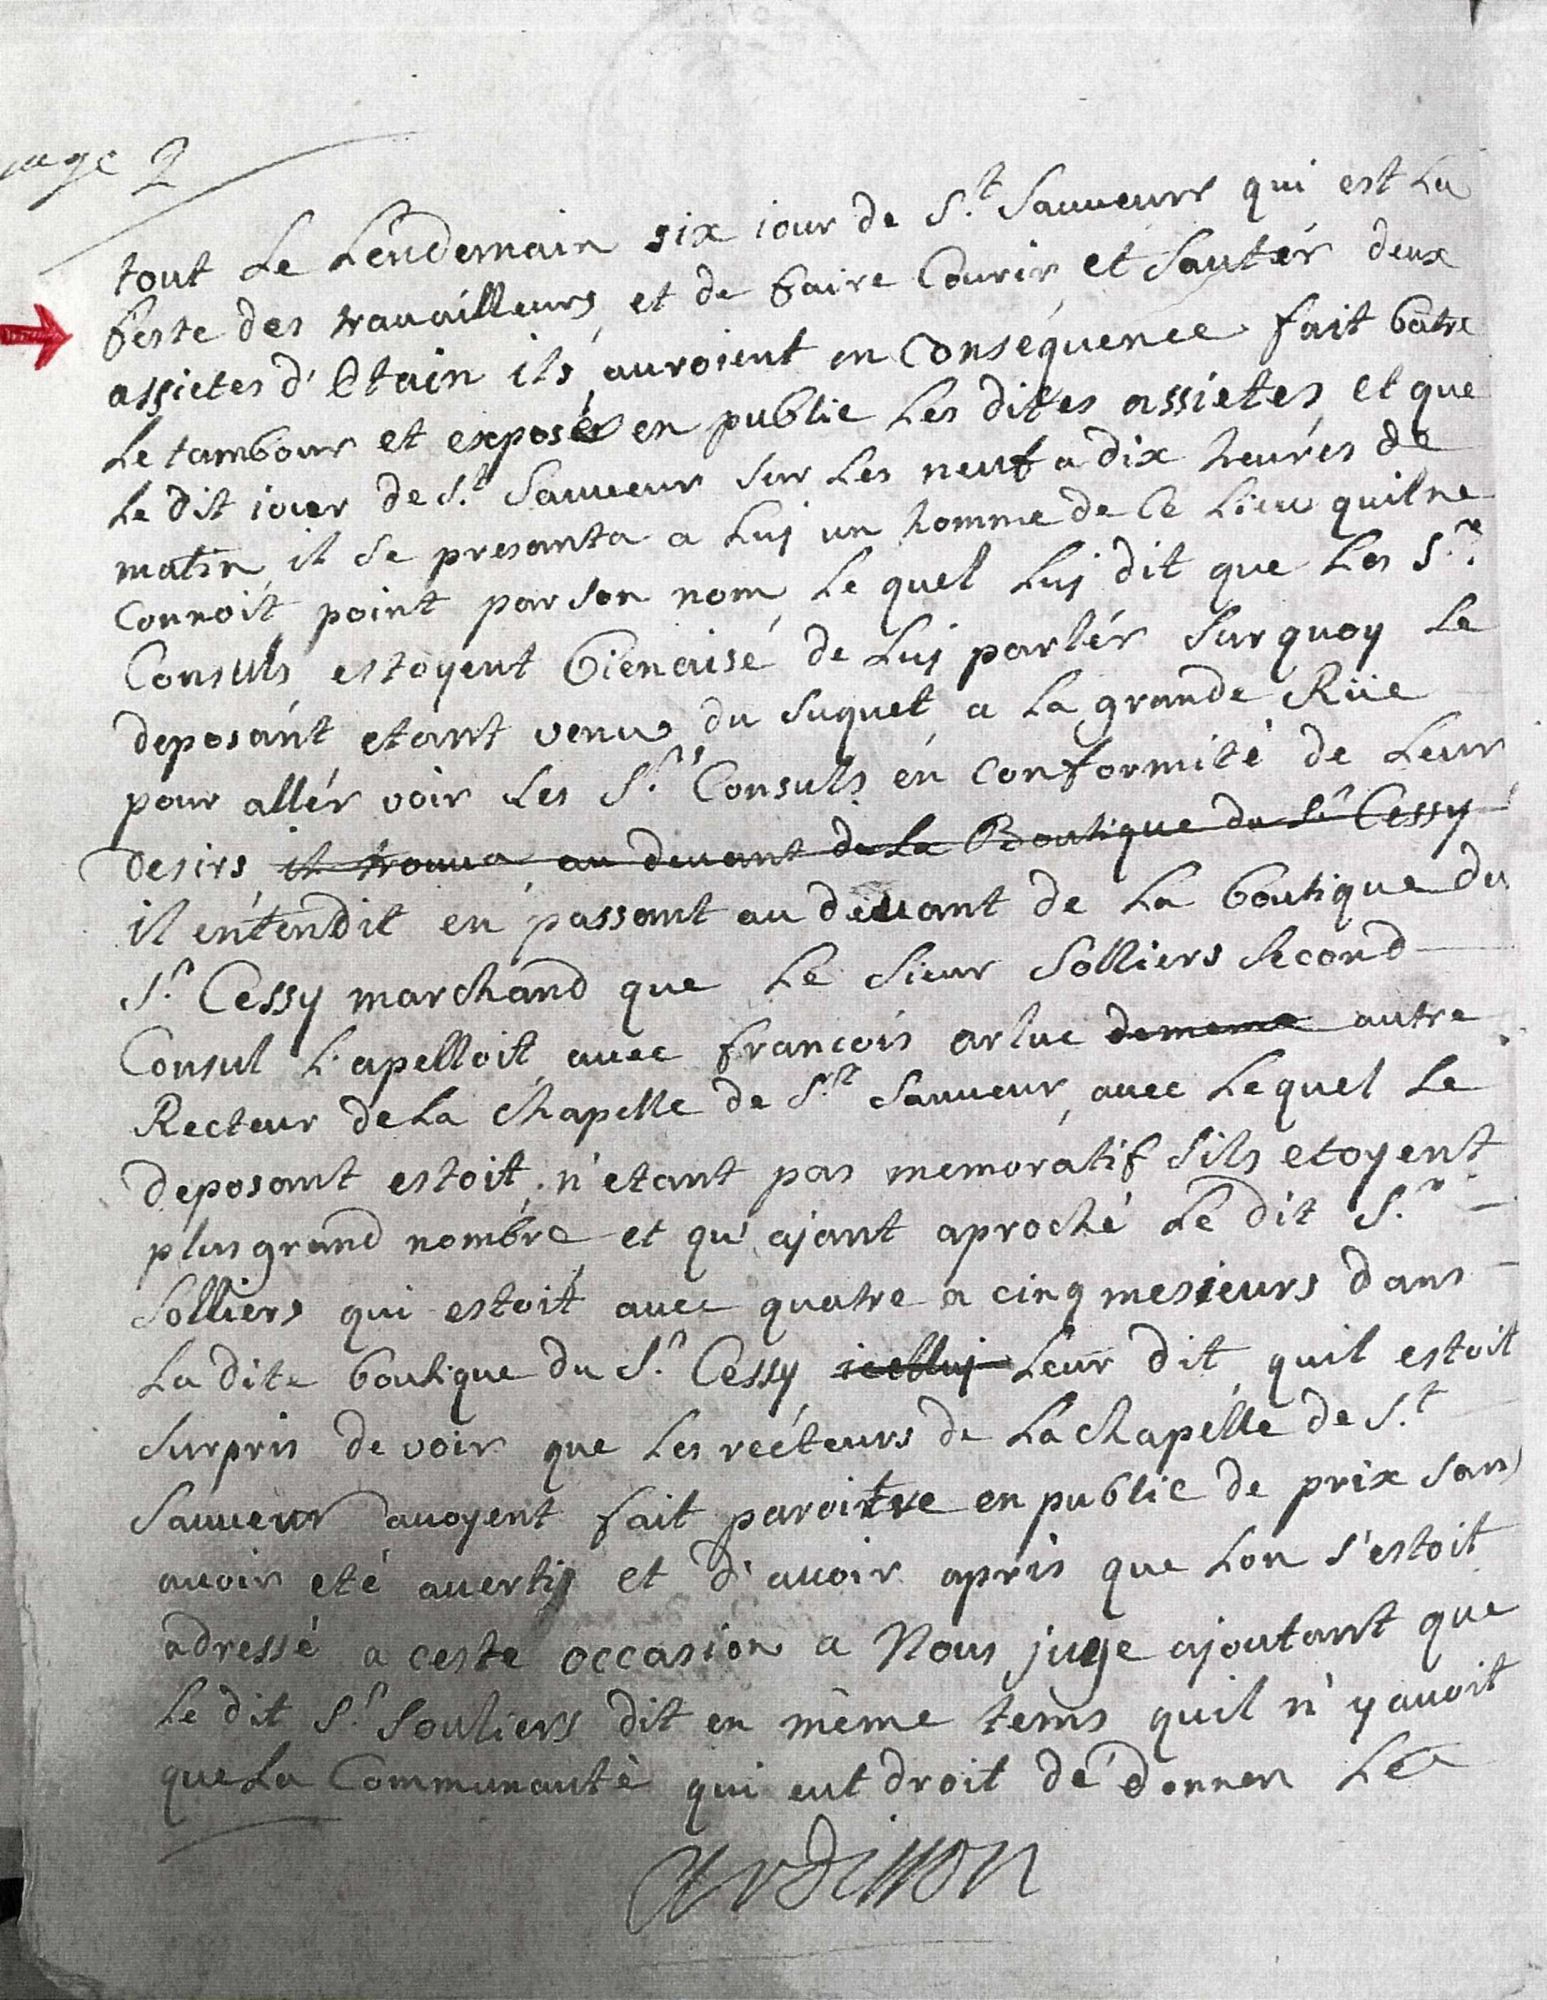 page 2
tout le lendemain six iour de S.t Sauveur qui est la
feste des travailleurs, et de faire Courir et Sautér deux
assietes d'Etain ils auroient en Conséquence fait batre
le tambour et exposér en public les dites assietes et que
le dit iour de S.t Sauveur sur les neuf a dix heures de
matin, il se presanta a luj un homme de Ce lieu quil ne
Connoit point par son nom, le quel luj dit que les S.rs
Consuls estoyent bienaisé de luj parlér Surquoy le
deposant etant venu du Suquet a la grande Rüe
pour allér voir les S.rs Consuls en conformité de leur
desirs, il trouva, au devant de la Boutique du S.r Cessy
il entendit en passant au devant de la boutique du
S.r Cessy marchand que le Sieur Solliers Second
Consul l'apelloit avec françois arluc de meme autre
Recteur de la Chapelle de S.t Sauveur, avec lequel le
deposant estoit, n'etant pas memoratif sils etoyent
plus grand nombre et qu'ajant aproché le dit S.r
Solliers qui estoit avec quatre a cinq mesieurs dans
la dite boutique du S.r Cessy, icelluj leur dit, quil estoit
Surpris de voir que les recteurs de la Chapélle de S.t
Sauveur avoyent fait paroitre en public de prix sans
avoir eté avertij et d'avoir apris que lon s'estoit
adressé a ceste occasion a Nous juge ajoutant que
le dit S.r Souliers dit en même tems quil n'y avoit
que la Communauté qui eut droit de donner les
Ardisson